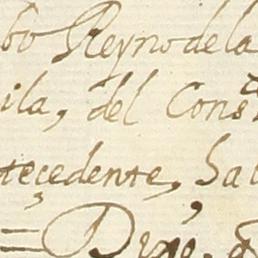 bo Reyno de la
ila, del Cons
tecedente, Sa